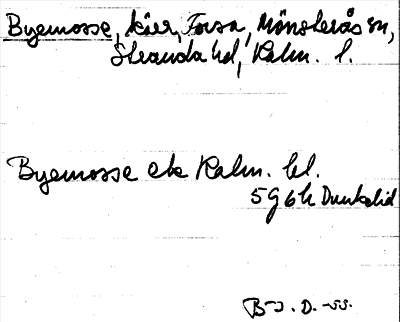 Byemosse, kärr, Forsa, Mönsterås sn,
Stranda hd, Kalm. l.
Byemosse ek Kalm. bl.
5 G 6 h Dunkelid
B-I. D. -55.